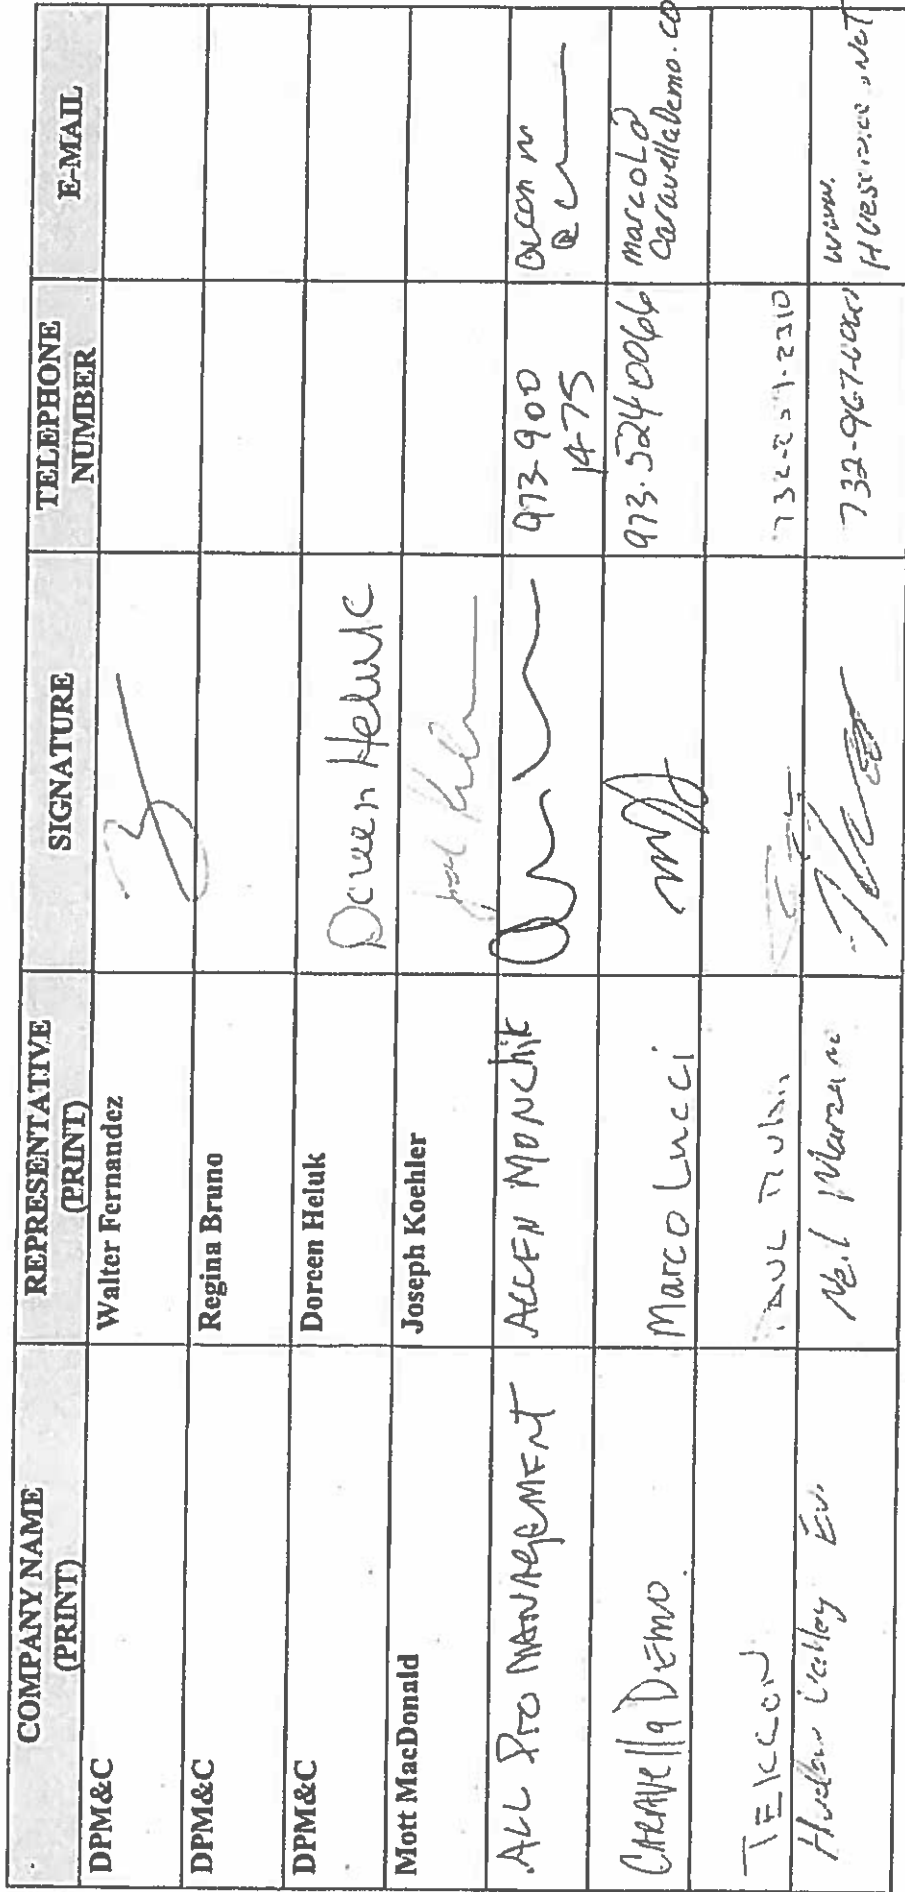 COMPANY NAME (PRINT) REPRESENTATIVE (PRINT) SIGNATURE TELEPHONE NUMBER E-MAIL
DPM&C Walter Fernandez
DPM&C Regina Bruno
DPM&C Doreen Heluk Doreen Heluk
Mott MacDonald Joseph Koehler
ALL PRO MANAGEMENT ALLEN MONChiK 973-900 1475
CARAVEllA DEMO Marco Lucci 973.524 0066 marcoL@ Caravellademo.co
TEKCON PAUL 2310
Hudson Valley Env. Neil Marzano 732-967- www.